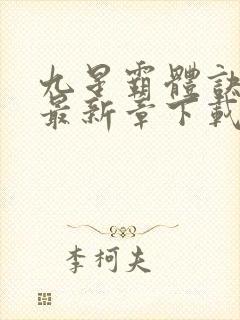 九星霸體訣
最新章下載
李柯夫